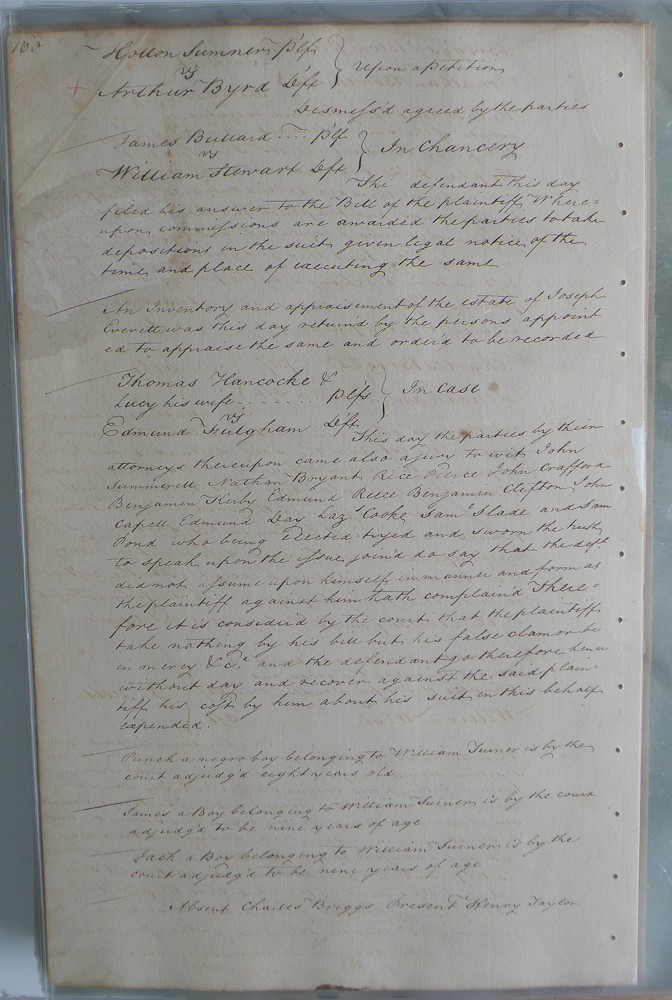 160
Hollon Sumner plf
vs } Upon a Petition
Arthur Byrd Deft
Dismiss'd agreed by the parties
James Bullard .... plf
vs } In Chancery
William Stewart Deft
The defendant this day
filed his answer to the Bill of the plaintiff Where=
upon commissions are awarded the parties to take
depositions in the suit given legal notice of the
time and place of executing the same
An Inventory and appraisement of the estate of Joseph
Everett was this day return'd by the persons appoint
ed to appraise the same and order'd to be recorded
Thomas Hancocke &
Lucy his wife ........ plfs } In Case
vs
Edmund Fulgham Deft
This day the parties by their
attorneys thereupon came also a jury to wit John
Summerell Nathan Bryant Rice Pierce John Crafford
Benjamin Kirby Edmund Reece Benjamin Clifton John
Capell Edmund Day Lazs Cooke Saml Slade and Sam
Pond who being elected tryed and sworn the truth
to speak upon the issue join'd do say that the deft
did not assume upon himself in manner and form as
the plaintiff against him hath complain'd There=
fore it is consider'd by the court that the plaintiff
take nothing by his bill but his false clamor be
in mercy &ca and the defendant go therefore hence
without day and recover against the said plain
tiff his cost by him about his suit in this behalf
expended.
Punch a negro boy belonging to William Turner is by the
court adjudg'd eight years old
James a Boy belonging to William Turner is by the court
adjudg'd to be nine years of age
Zack a Boy belonging to William Turner is by the
court adjudg'd to be nine years of age
Absent Charles Briggs Present Henry Taylor